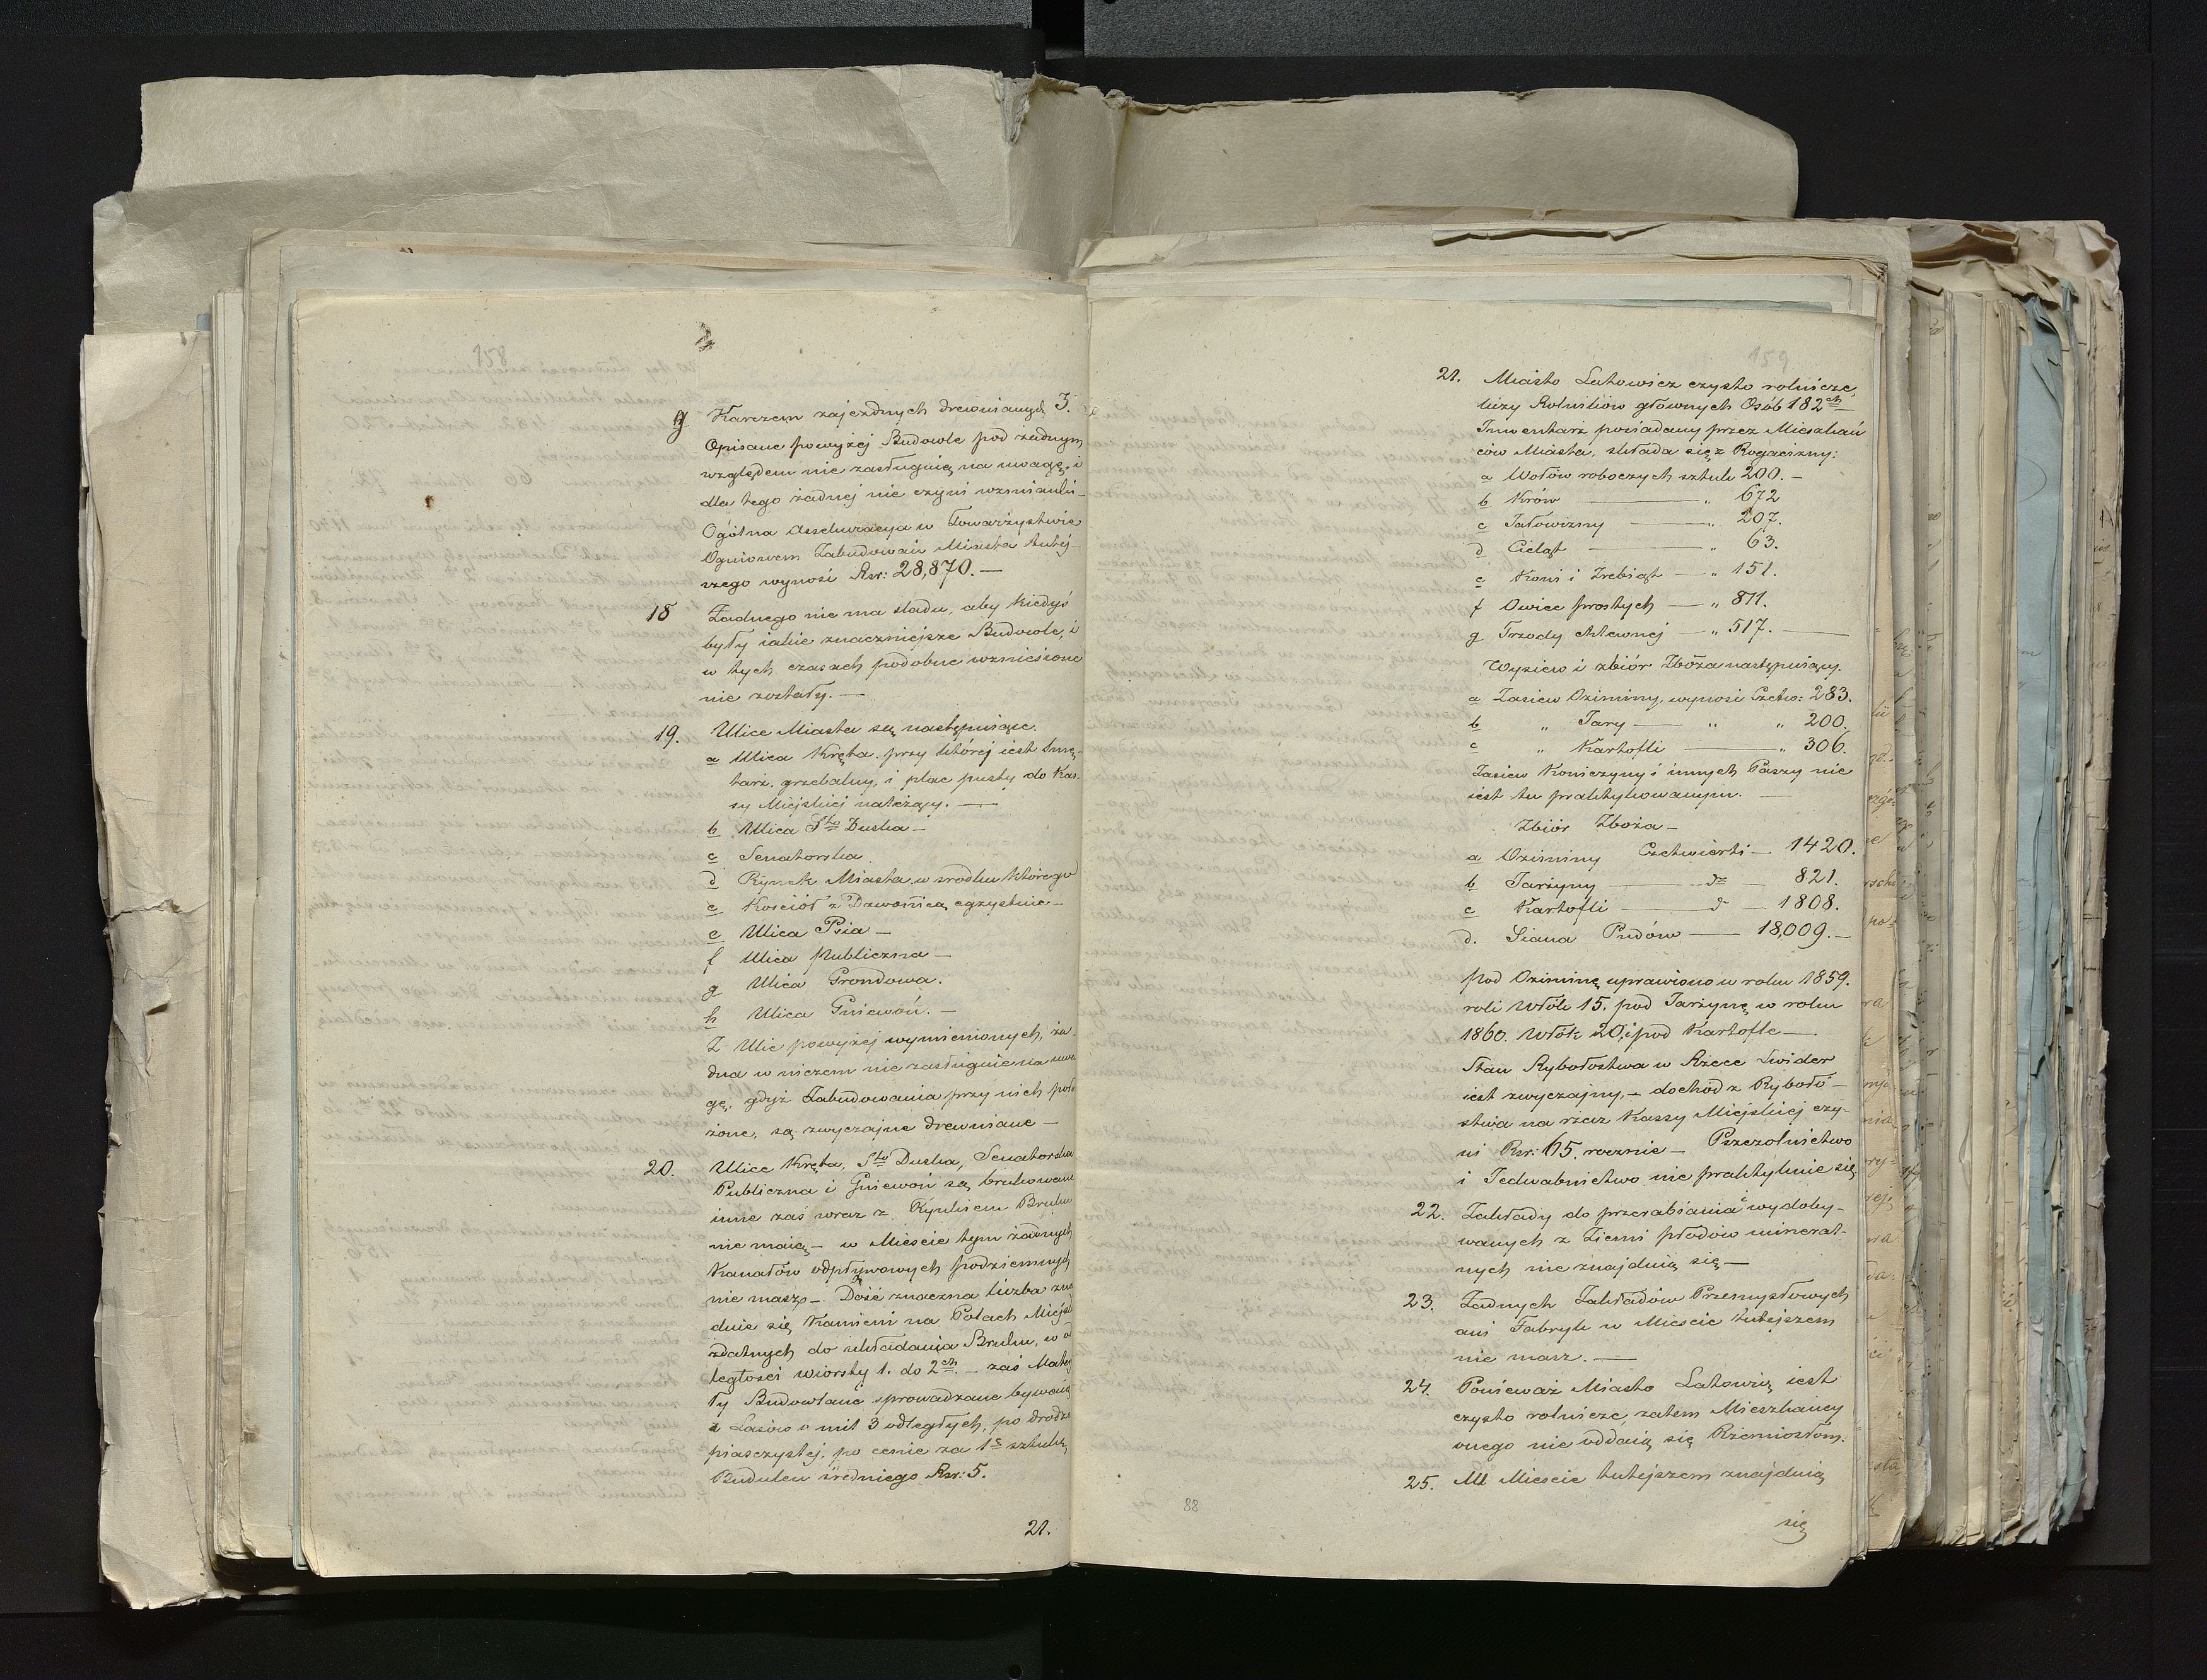 158
g Karczem zajezdnych drewnianych 3.
Opisane powyżej Budowle pod żadnym
względem nie zasługuią na uwagę, i
dla tego żadnej nie czyni wzmianki –
Ogólna Assekuracya w Towarzystwie
Ogniowem Zabudowań Miasta tutej-
szego wynosi Rsr: 28,870. —
18 Żadnego nie ma sladu, aby kiedyś
były iakie znaczniejsze Budowle, i
w tych czasach podobne wzniesione
nie zostały. —
19. Ulice Miasta są następuiące.
a Ulica Kręta. przy której iest Smę-
tarz. grzebalny, i plac pusty do Kas-
sy Miejskiej należący. —
b Ulica Sto Duska –
c Senatorska
d Rynek Miasta, w srodku którego
e Kosciół z Dzwonicą egzystuie –
e Ulica Psia –
f Ulica Publiczna –
g Ulica Grondowa.
h Ulica Gniewoń. –
Z Ulic powyżej wymienionych, ża
dna w niczem nie zasługuie na uwa
gę, gdyż Zabudowania przy nich poło
żone, są zwyczajne drewniane –
20. Ulice Kręta, Sto Duska, Senatorska
Publiczna i Gniewoń są brukowane
inne zaś wraz z Rynkiem Bruku
nie maią – w Miescie tym żadnych
Kanałów odpływowych podziemnych
nie masz – Dość znaczna liczba zna
duie się Kamieni na Polach Miejsk
zdatnych do układania Bruku, w o
ległości wiorsty 1. do 2ch – zaś Mater
ły Budowlane sprowadzane bywaią
z Lasów o mil 3 odległych, po drodze
piasczystej. po cenie za 1ą sztukę
Budulcu średniego Rsr: 5.
21.
159
21. Miasto Latowicz czysto rolnicze,
liczy Rolników głównych Osób 182ch
Inwentarz posiadany przez Mieszkań
ców Miasta, składa się z Rogacizny:
a Wołów roboczych sztuk 200. –
b Krów — „ 672
c Jałowizny — „ 207.
d Cieląt — „ 63.
e Koni i Zrebiąt — „ 151.
f Owiec prostych — „ 811.
g Trzody chlewnej — „ 517. —
Wysiew i zbiór Zboża następuiący.
a Zasiew Oziminy, wynosi Czetw: 283.
b „ Jary — „ „ 200.
c „ Kartofli — „ 306.
Zasiew Koniczyny i innych Paszy nie
iest tu praktykowanym. —
Zbiór Zboża –
a Oziminy Czetwierti – 1420.
b Jarzyny — do — 821.
c Kartofli — d — 1808.
d. Siana Pudów — 18,009. –
Pod Oziminę uprawiono w roku 1859.
roli Włók 15. pod Jarzynę w roku
1860. Włók 20, i pod Kartofle —.
Stan Rybołostwa w Rzece Swider
iest zwyczajny, – dochod z Ryboło –
stwa na rzecz Kassy Miejskiej czy-
ni Rsr: 65. rocznie – Pszczolnictwo
i Jedwabnictwo nie praktykuie się,
22. Zakłady do przerabiania i wydoby-
wanych z Ziemi płodow mineral-
nych nie znajduią się –
23. Żadnych Zakładów Przemysłowych
ani Fabryk w Miescie tutejszem
nie masz. —
24. Ponieważ Miasto Latowicz iest
czysto rolnicze, zatem Mieszkancy
onego nie oddaią się Rzemiosłom.
25. W Miescie tutejszem znajduią
się
88